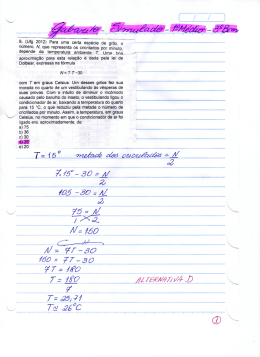 Gabarito - Simulado - 1º Médio - 3º Bim
5. (Ufg 2012) Para uma certa espécie de grilo, o
número, N, que representa os cricrilados por minuto,
depende da temperatura ambiente T. Uma boa
aproximação para esta relação é dada pela lei de
Dolbear, expressa na fórmula
N = 7 T - 30
com T em graus Celsius. Um desses grilos fez sua
morada no quarto de um vestibulando às vésperas de
suas provas. Com o intuito de diminuir o incômodo
causado pelo barulho do inseto, o vestibulando ligou o
condicionador de ar, baixando a temperatura do quarto
para 15 °C, o que reduziu pela metade o número de
cricrilados por minuto. Assim, a temperatura, em graus
Celsius, no momento em que o condicionador de ar foi
ligado era, aproximadamente, de:
a) 75
b) 36
c) 30
d) 26
e) 20
T = 15° metade dos cricrilados = N/2
7.15° - 30 = N/2
105 - 30 = N/2
75/1 = N/2
N = 150
N = 7T - 30
150 = 7T - 30
7T = 180
T = 180/7 ALTERNATIVA D
T = 25,71
T ≅ 26°C
1